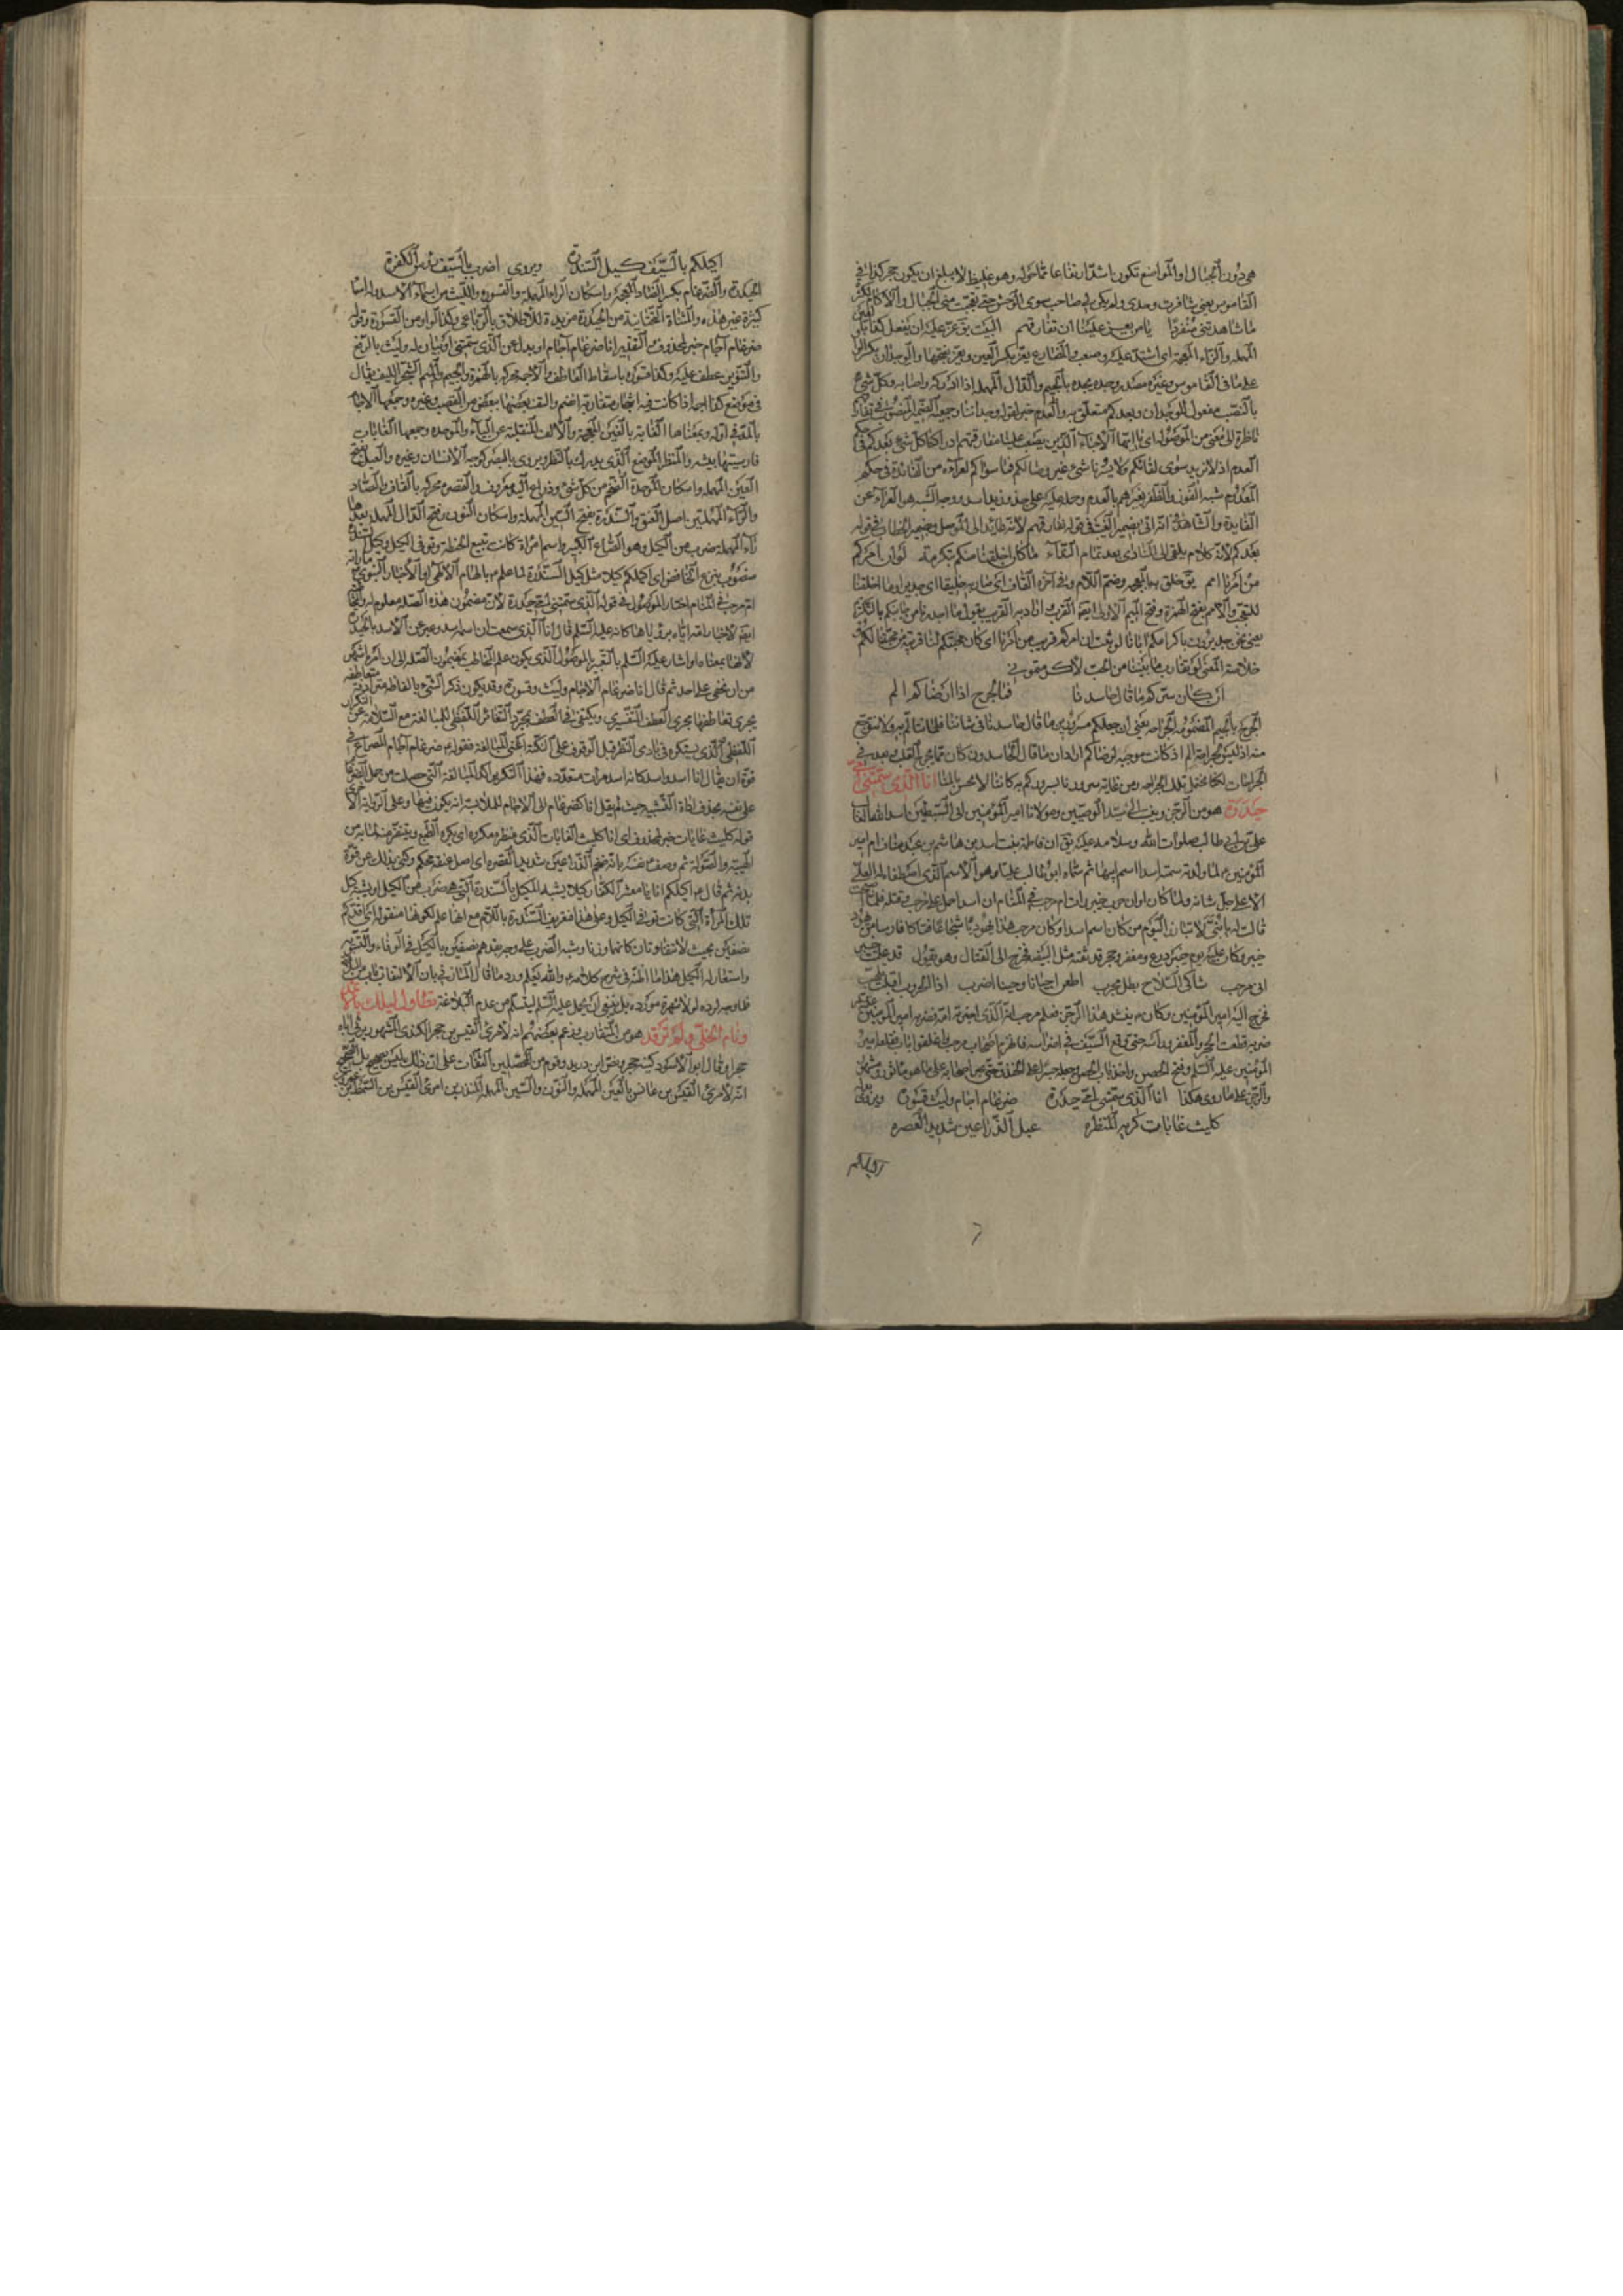 هي دون الجبال او الموضع تكون اشد ارتفاعا مما حوله وهو غليظ لا يبلغ ان يكون حجرا كذا في
القاموس يعني سافرت وحدي ولم يكن لي صاحب سوى الوحش حتى تعجبت مني الجبال والآكام
لما شاهدتني منفردا يا من يعز علينا ان نفارقهم البيت يق عز عليك ان يفعل كذا
المهملة والزاء المعجمة اي اشتد عليك وصعب والمضارع يعز بكسر العين ويعز بفتحها والوجدان بكسر الواو
على ما في القاموس وغيره مصدر وجده يجده بالجيم والدال المهملة اذا ادركه واصابه وكل شيء
بالنصب مفعول للوجدان وبعدكم متعلق به والعدم خبر لقوله وجداننا وجمع الضمير المنصوب في
ناظرة الى معنى من الموصولة اي يا ايها الاحباء الذين يصعب علينا مفارقتهم ادراكنا كل شيء بعدكم في حكم
العدم اذ لا نريد سوى لقائكم ولا يسرنا شيء غير وصالكم فما سواكم لعرائه من الفائدة في حكم
العدم
الفايدة
بعدكم لانه كلام يلقى الى المنادى بعد تمام النداء ما كان اخلقنا منكم بتكرمة لو ان امركم
من امرنا امم يق خلق بالمعجمة وضم اللام وفي آخره القاف اي صار خليقا اي جديرا وما اخلقنا
للتعجب والامم بفتح الهمزة وفتح الميم الاولى ايضا القرب
يعني نحن جديرون باكرامكم ايانا لو ثبت ان امركم قريب من امرنا اي كان محبتكم لنا قريبة من محبتنا لكم
خلاصة المعنى لو تقارب ما بيننا من الحب
ان كان سركم ما قال حاسدنا فما لجرح اذا ارضاكم الم
الجرح بالجيم المضمومة الجراحة يعني ان جعلكم مسرورين ما قال حاسدنا في شاننا فلا نتالم به ولا نتوجع
منه اذ ليس لجراحة الم اذ كانت موجبة لرضاكم اراد ان ما قال الحاسدون كان مما يجرح القلب
الجراحات لكنا نحتمل تلك الجراحة ومن غاية سرورنا بسروركم به كاننا لا نحس بالمنا انا الذي سمتني امي
حيدرة هو من الرجز وينسب الى سيد الوصيين ومولانا امير المؤمنين ابي السبطين اسد الله الغالب
علي بن ابي طالب صلوات الله وسلامه عليه يق ان فاطمة بنت اسد بن هاشم بن عبد مناف ام امير
المؤمنين ع لما ولدته سمته اسدا باسم ابيها ثم سماه ابو طالب عليا وهو الاسم الذي اصطفاه له العلي
الاعلى جل شانه ولما كان اوان حرب خيبر رأت ام مرحب في المنام ان اسدا حمل على مرحب وقتله فلما اصبحت
قالت له يا بني لا تبارزن اليوم من كان اسمه اسدا وكان مرحب هذا يهوديا شجاعا فتاكا فارسا من يهود
خيبر وكان عليه يوم خيبر درع ومغفر وحجر قد ثقبه مثل البيضة فخرج الى القتال وهو يقول قد علمت خيبر
اني مرحب شاكي السلاح بطل مجرب اطعن احيانا وحينا اضرب اذا الحروب اقبلت تلتهب
فخرج اليه امير المؤمنين وكان ع ينشد هذا الرجز فعلم مرحب انه الذي اخبرته امه فضربه امير المؤمنين ع
ضربة قطعت الحجر والمغفر ورأسه حتى وقع السيف في اضراسه فانهزم اصحاب مرحب فاغلقوا باب
المؤمنين عليه السلام وفتح الحصن واخذ باب الحصن وجعله جسرا على الخندق حتى عبر اصحابه على ما هو مأثور ومشهور
والرجز على ما روي هكذا انا الذي سمتني امي حيدرة ضرغام آجام وليث قسورة ويروى
كليث غابات كريه المنظرة عبل الذراعين شديد القصرة
اكيلكم
اكيلكم بالسيف كيل السندرة ويروى اضرب بالسيف رؤس الكفرة
الحيدرة والضرغام بكسر الضاد المعجمة واسكان الراء المهملة والقسورة والليث من اسماء الاسد وله اسماء
كثيرة غير هذه والمثناة التحتانية من الحيدرة مزيدة للالحاق بالرباعي وكذا الواو من القسورة وقوله
ضرغام آجام خبر لمحذوف والتقدير انا ضرغام آجام او بدل عن الذي سمتني او بيان له وليث بالرفع
والتنوين عطف عليه وكذا قسورة باسقاط العاطف والاجمة محركة بالهمزة والجيم والميم الشجر الملتف يقال
في موضع كذا اجمة اذا كانت فيه اشجار متقاربة انضم والتف بعضها ببعض من القصب وغيره وجمعها الآجام
بالمد في اوله وبمعناها الغابة بالغين المعجمة والالف المنقلبة عن الياء والموحدة وجمعها الغابات
والمنظر الموضع الذي يدرك بالنظر ويروى بالمبصر كوجه الانسان وغيره والعبل بفتح
العين المهملة واسكان الموحدة الضخم من كل شيء وذراع اليد معروف والقصرة محركة بالقاف والصاد
والراء المهملتين اصل العنق والسندرة بفتح السين المهملة واسكان النون وفتح الدال المهملة بعدها
راء مهملة ضرب من الكيل وهو الصاع الكبير واسم امرأة كانت تبيع الحنطة وتوفي الكيل وكيل السندرة
منصوب بنزع الخافض اي اكيلكم كيلا مثل كيل السندرة لما علم ع بالهام الالهي او الاخبار النبوي ما رأته
ام مرحب في المنام اختار الموصول في قوله الذي سمتني امي حيدرة لان مضمون هذه الصلة معلوم له
لاخبار امه اياه برؤياها كانه عليه السلم قال انا الذي سمعت ان اسمه اسد وعبر عن الاسد بالحيدرة
لانها بمعناه واشار عليه السلم بالتعبير بالموصول الذي يكون علم المخاطب بمضمون الصلة الى ان امره اشهر
من ان يخفى على احد ثم قال انا ضرغام الآجام وليث وقسورة وقد يكون ذكر الشيء بالفاظ مترادفة متعاطفة
يجري تعاطفها مجرى العطف التفسيري ويكتفى في العطف بمجرد التغاير اللفظي للمبالغة مع السلامة عن التكرار
اللفظي الذي يستكره في بادي النظر قبل الوقوف على النكتة اعني المبالغة فقوله ع ضرغام آجام المصراع في
قوة ان يقال انا اسد واسد كانه اسد مرات متعددة
على نفسه بحذف اداة التشبيه حيث لم يقل انا كضرغام
قوله كليث غابات خبر لمحذوف اي انا كليث الغابات الذي منظره مكروه اي يكره الطبع ويتنفر منه لما به من
الهيبة والصولة ثم وصف نفسه بانه ضخم الذراعين شديد القصرة اي اصل عنقه محكم وكنى بذلك عن قوة
بدنه ثم قال ع اكيلكم انا يا معشر الكفار كيلا يشبه الكيل بالسندرة التي هي ضرب من الكيل او يشبه كيل
تلك المرأة التي كانت توفي الكيل وعلى هذا فتعريف السندرة باللام مع انها علم لكونها منقولة اي اقدكم
نصفين بحيث لا تتفاوتان كانهما وزنا وشبه الضرب على وجه يقدهم نصفين بالكيل في الوفاء والتسوية
واستعار له الكيل هذا ما الهمته في شرح كلامه ع والله يعلم
ظاوجه لرده لو لا شهرة مورده بل ينبغي ان يحمل عليه السلم ليسلم من عدم البلاغة تطاول ليلك بالاثمد
ونام الخلي ولم ترقد هو من المتقارب وزعم بعضهم انه لامرئ القيس بن حجر الكندي المشهور يرثي اباه
حجرا وقال ابو الاسود كنية حجر ونص ابن دريد وقوم من المحصلين الثقات على ان ذلك ليس بصحيح بل الصحيح
انه لامرئ القيس بن عانس بالعين المهملة والنون والسين المهملة ابن المنذر بن امرئ القيس بن السمط بن عمرو